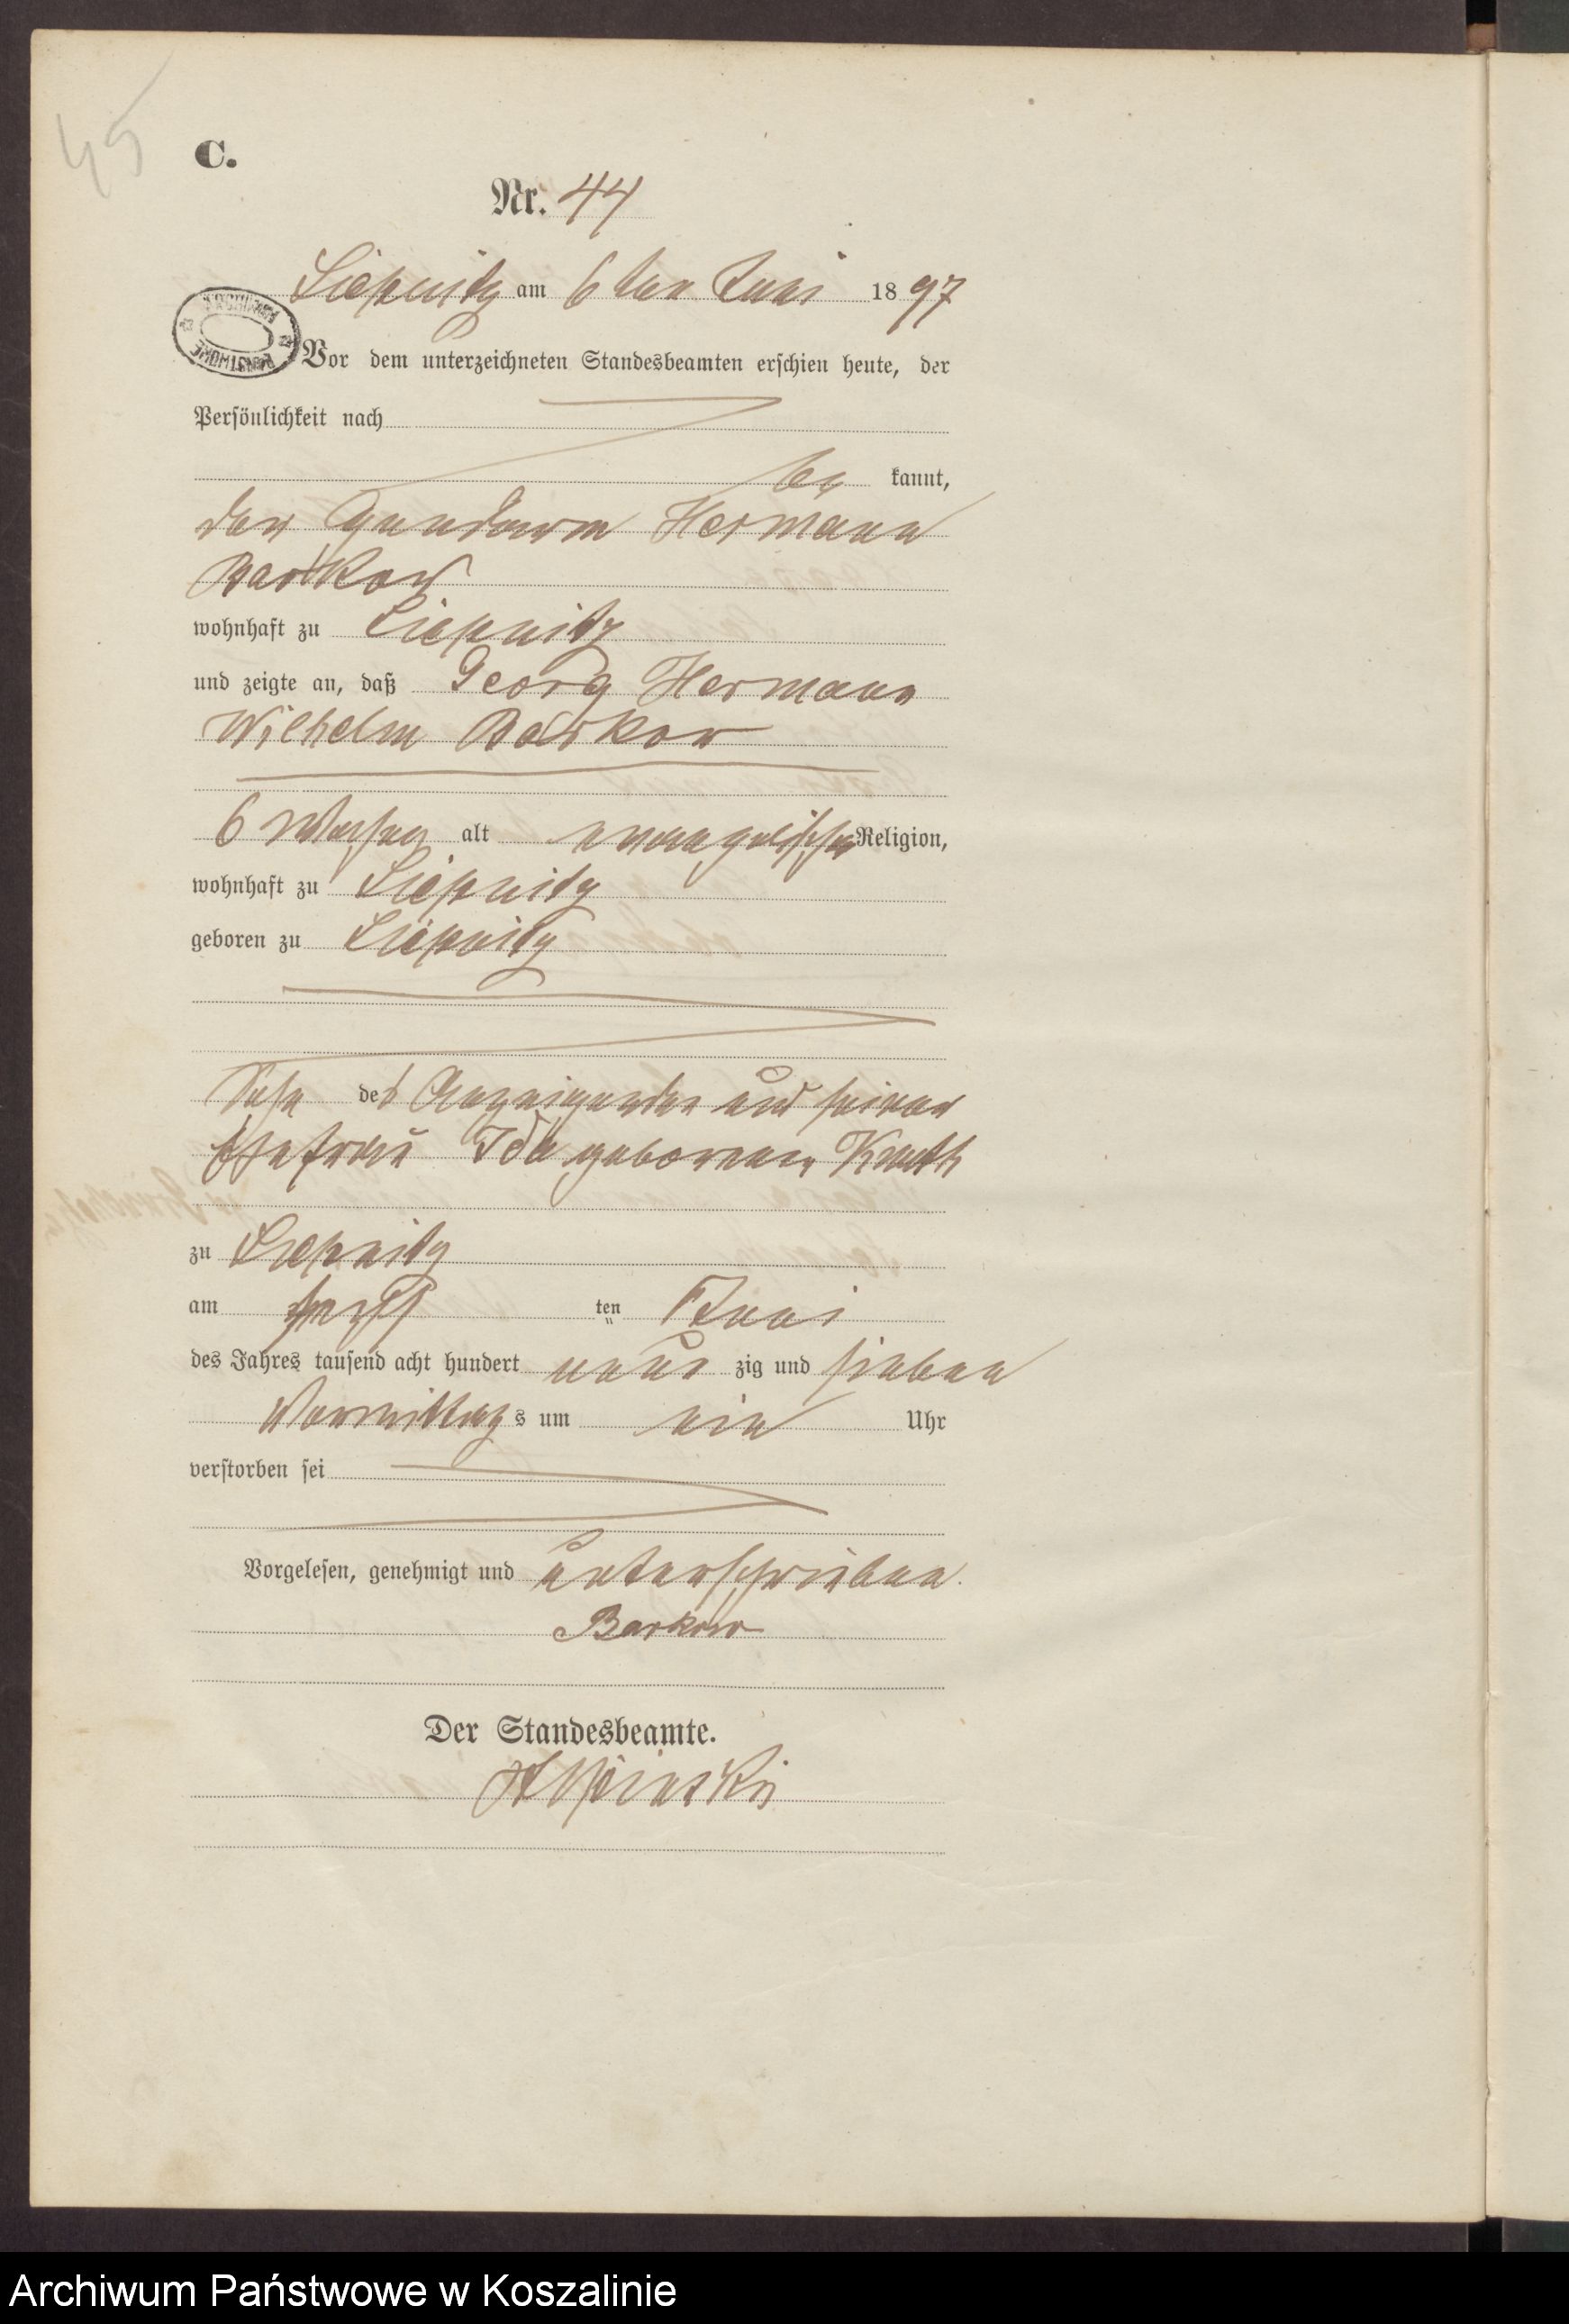 45
C.
Nr. 44
Liepnitz am 6ten Juni 1897
Vor dem unterzeichneten Standesbeamten erschien heute, der
Persönlichkeit nach
be kannt,
der Gendarm Hermann
Barkow
wohnhaft zu Liepnitz
und zeigte an, daß Georg Hermann
Wilhelm Barkow
6 Wochen alt evangelischer Religion,
wohnhaft zu Liepnitz
geboren zu Liepnitz
Sohn des Anzeigenden und seiner
Ehefrau Ida geborenen
zu Liepnitz
am ten Juni
des Jahres tausend acht hundert neun zig und sieben
Vormittags um ein Uhr
verstorben sei
Vorgelesen, genehmigt und unterschrieben.
Barkow
Der Standesbeamte.
Archiwum Państwowe w Koszalinie